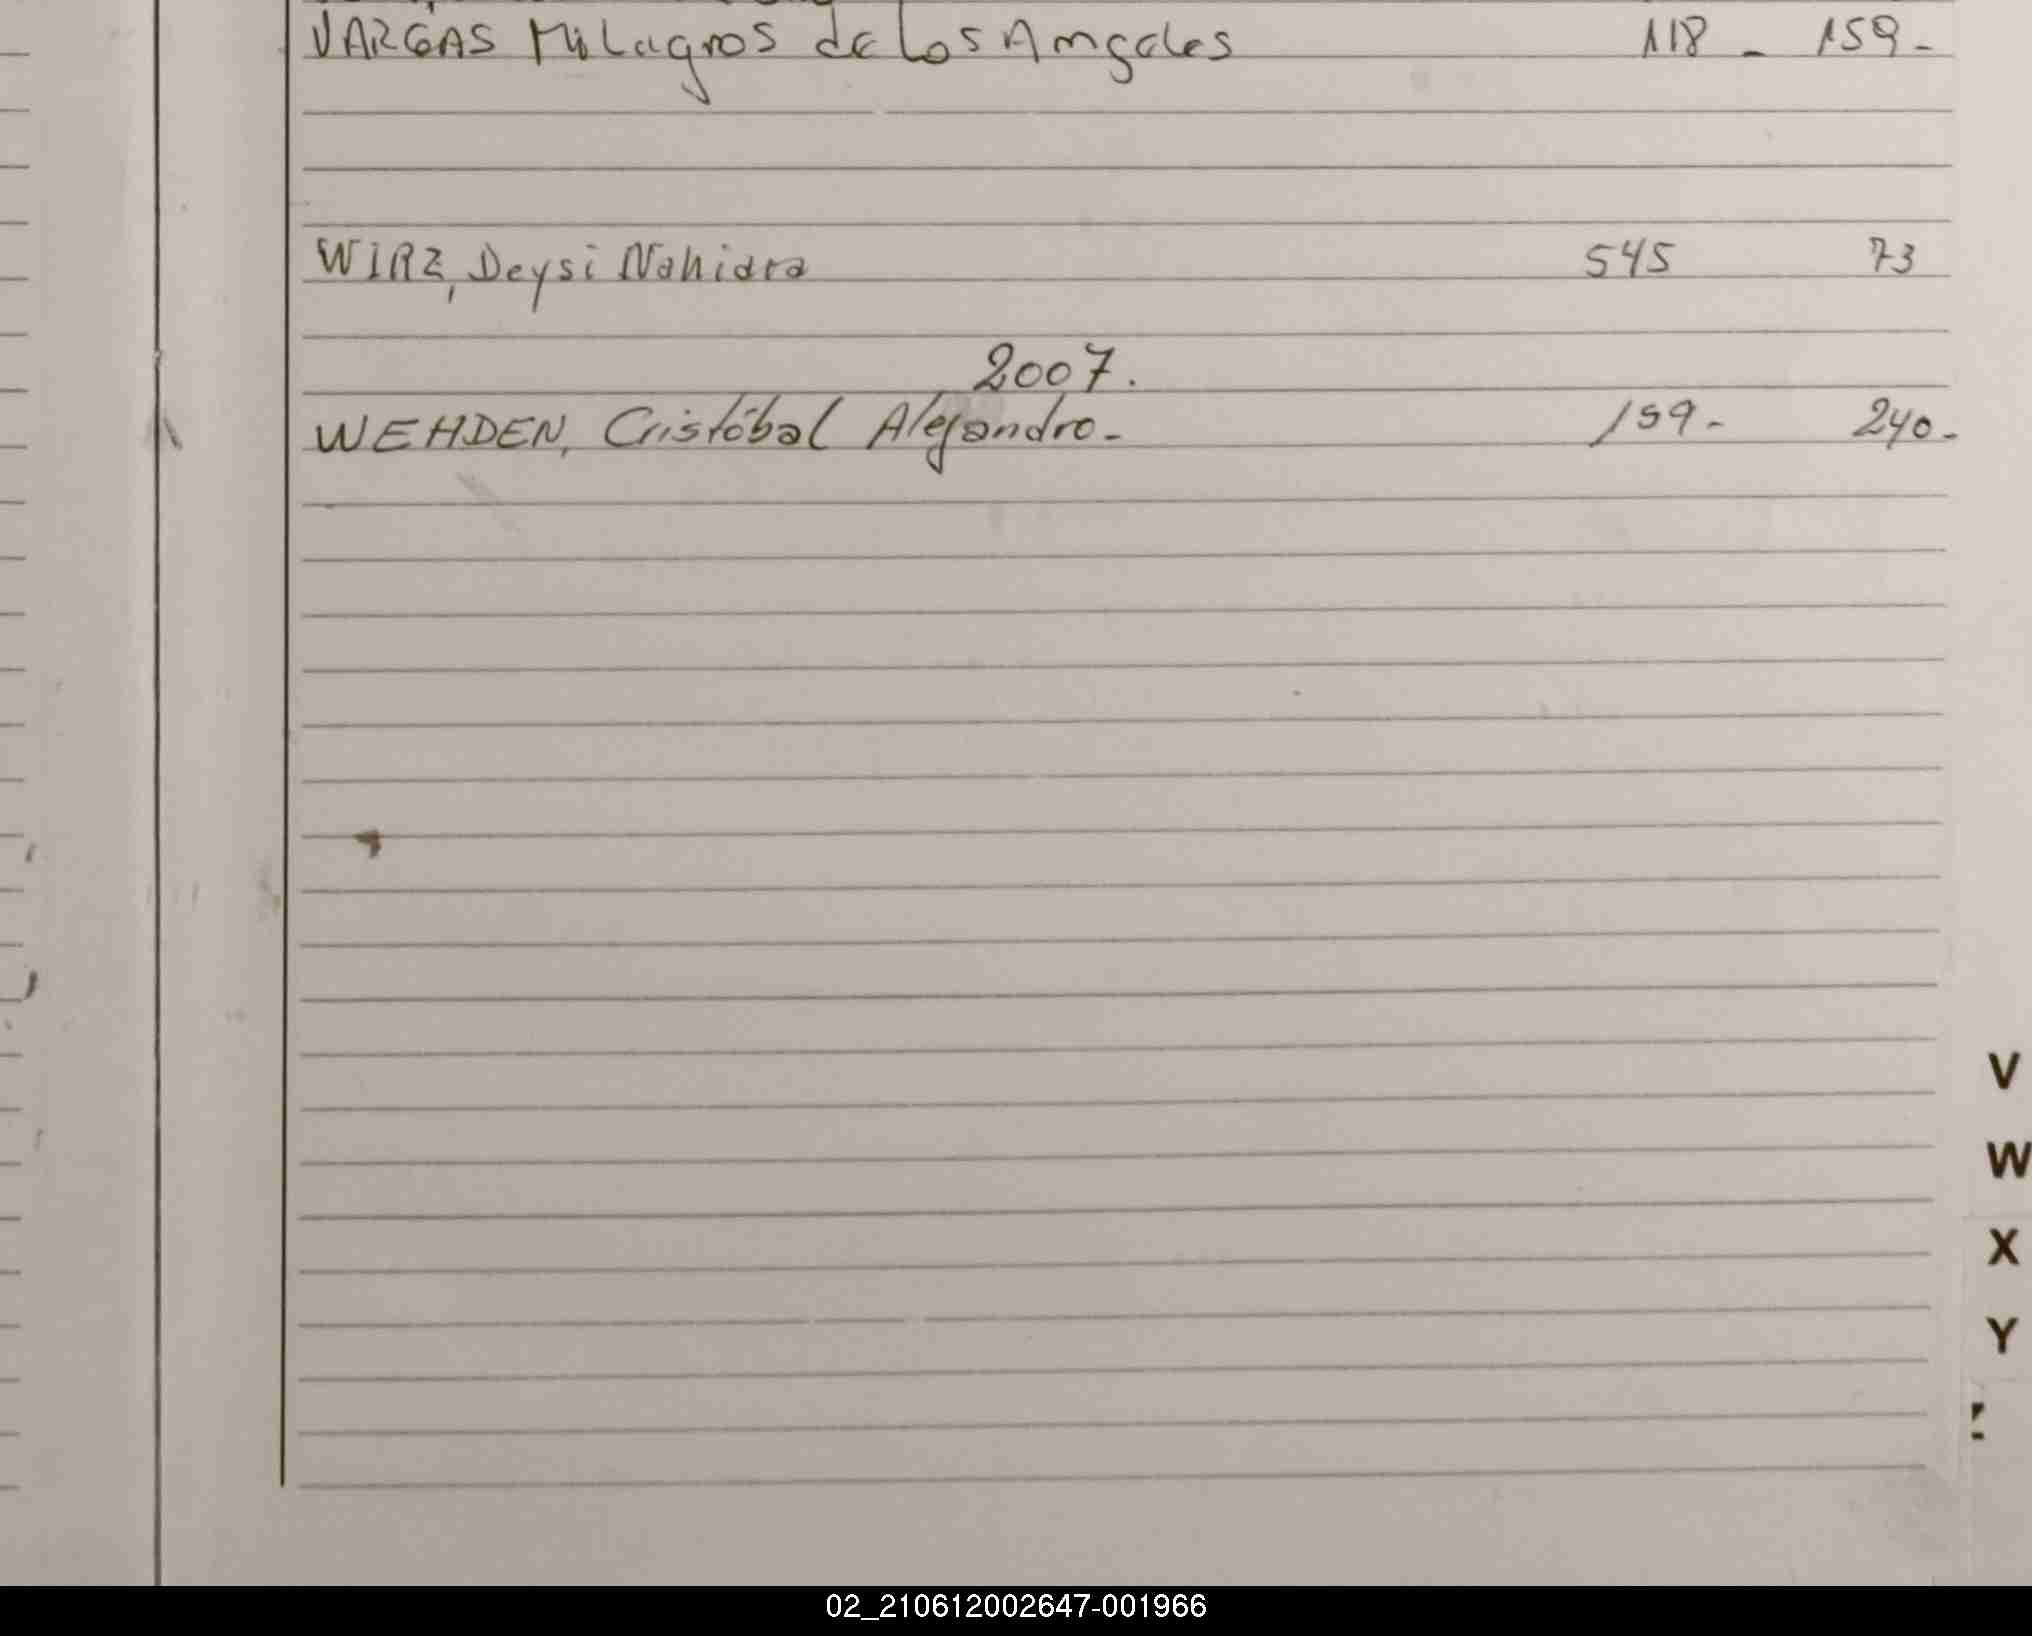 VARGAS Milagros de los Angeles 118 - 159-
WIRZ, Deysi Nahiara 545 73
2007.
WEHDEN, Cristóbal Alejandro- 159- 240-
V
W
X
Y
Z
02_210612002647-001966